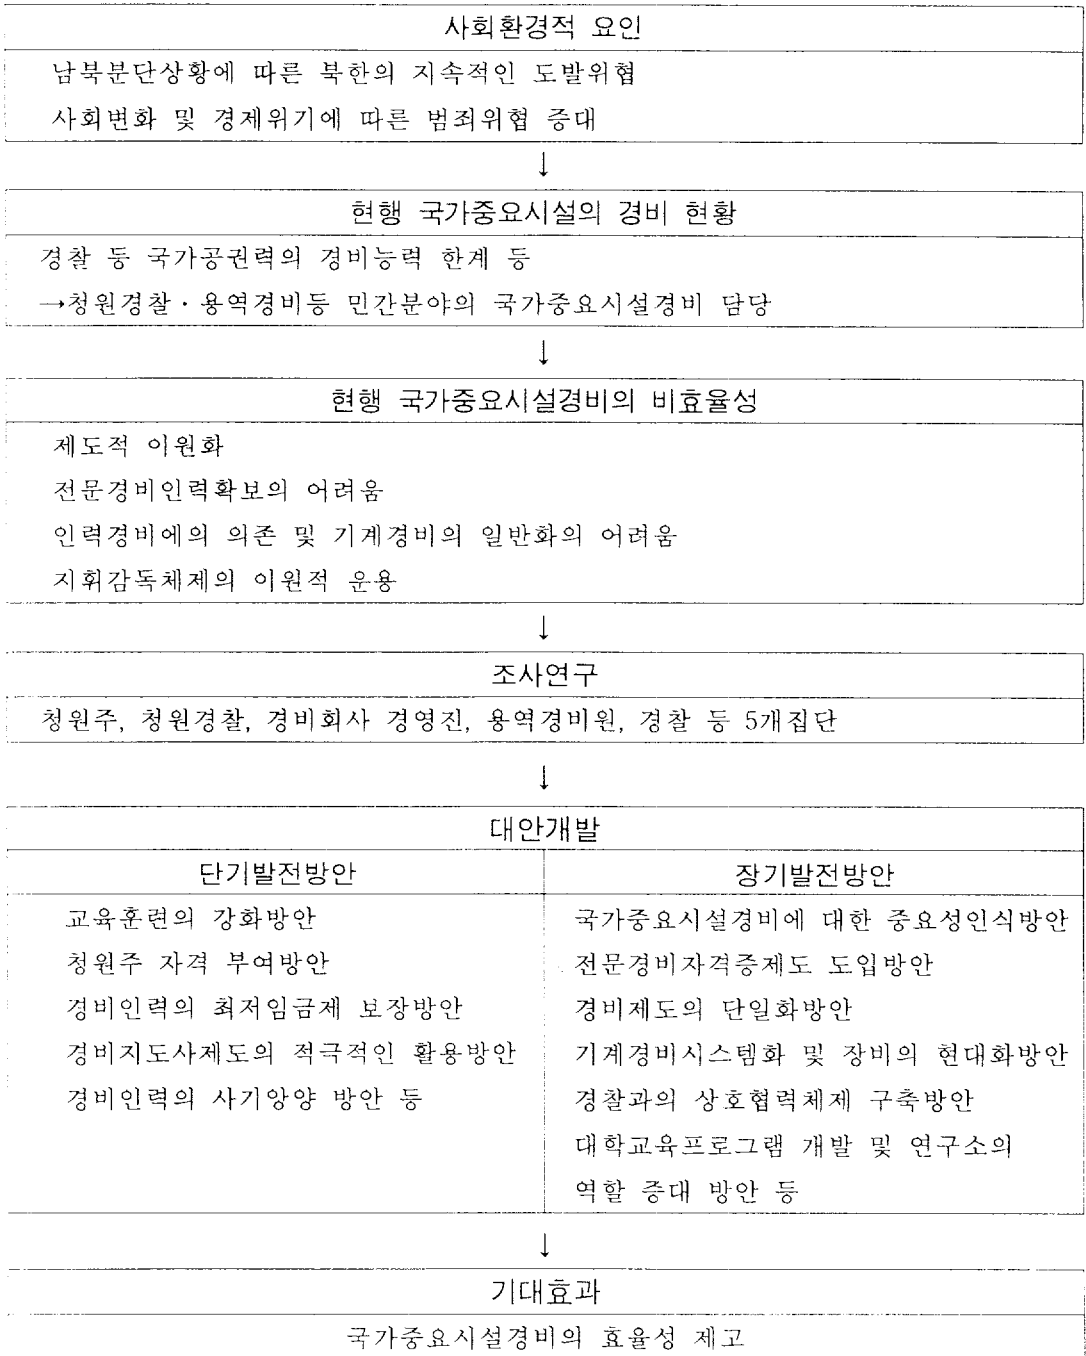 사회환경적 요인
남북분단상황에 따른 북한의 지속적인 도발위협
사회변화 및 경제위기에 따른 범죄위협 증대
↓
현행 국가중요시설의 경비 현황
경찰 등 국가공권력의 경비능력 한계 등
→청원경찰·용역경비등 민간분야의 국가중요시설경비 담당
↓
현행 국가중요시설경비의 비효율성
제도적 이원화
전문경비인력확보의 어려움
인력경비에의 의존 및 기계경비의 일반화의 어려움
지휘감독체제의 이원적 운용
↓
조사연구
청원주, 청원경찰, 경비회사 경영진, 용역경비원, 경찰 등 5개집단
↓
대안개발
단기발전방안
교육훈련의 강화방안
청원주 자격 부여방안
경비인력의 최저임금제 보장방안
경비지도사제도의 적극적인 활용방안
경비인력의 사기앙양 방안 등
장기발전방안
국가중요시설경비에 대한 중요성인식방안
전문경비자격증제도 도입방안
경비제도의 단일화방안
기계경비시스템화 및 장비의 현대화방안
경찰과의 상호협력체제 구축방안
대학교육프로그램 개발 및 연구소의
역할 증대 방안 등
↓
기대효과
국가중요시설경비의 효율성 제고